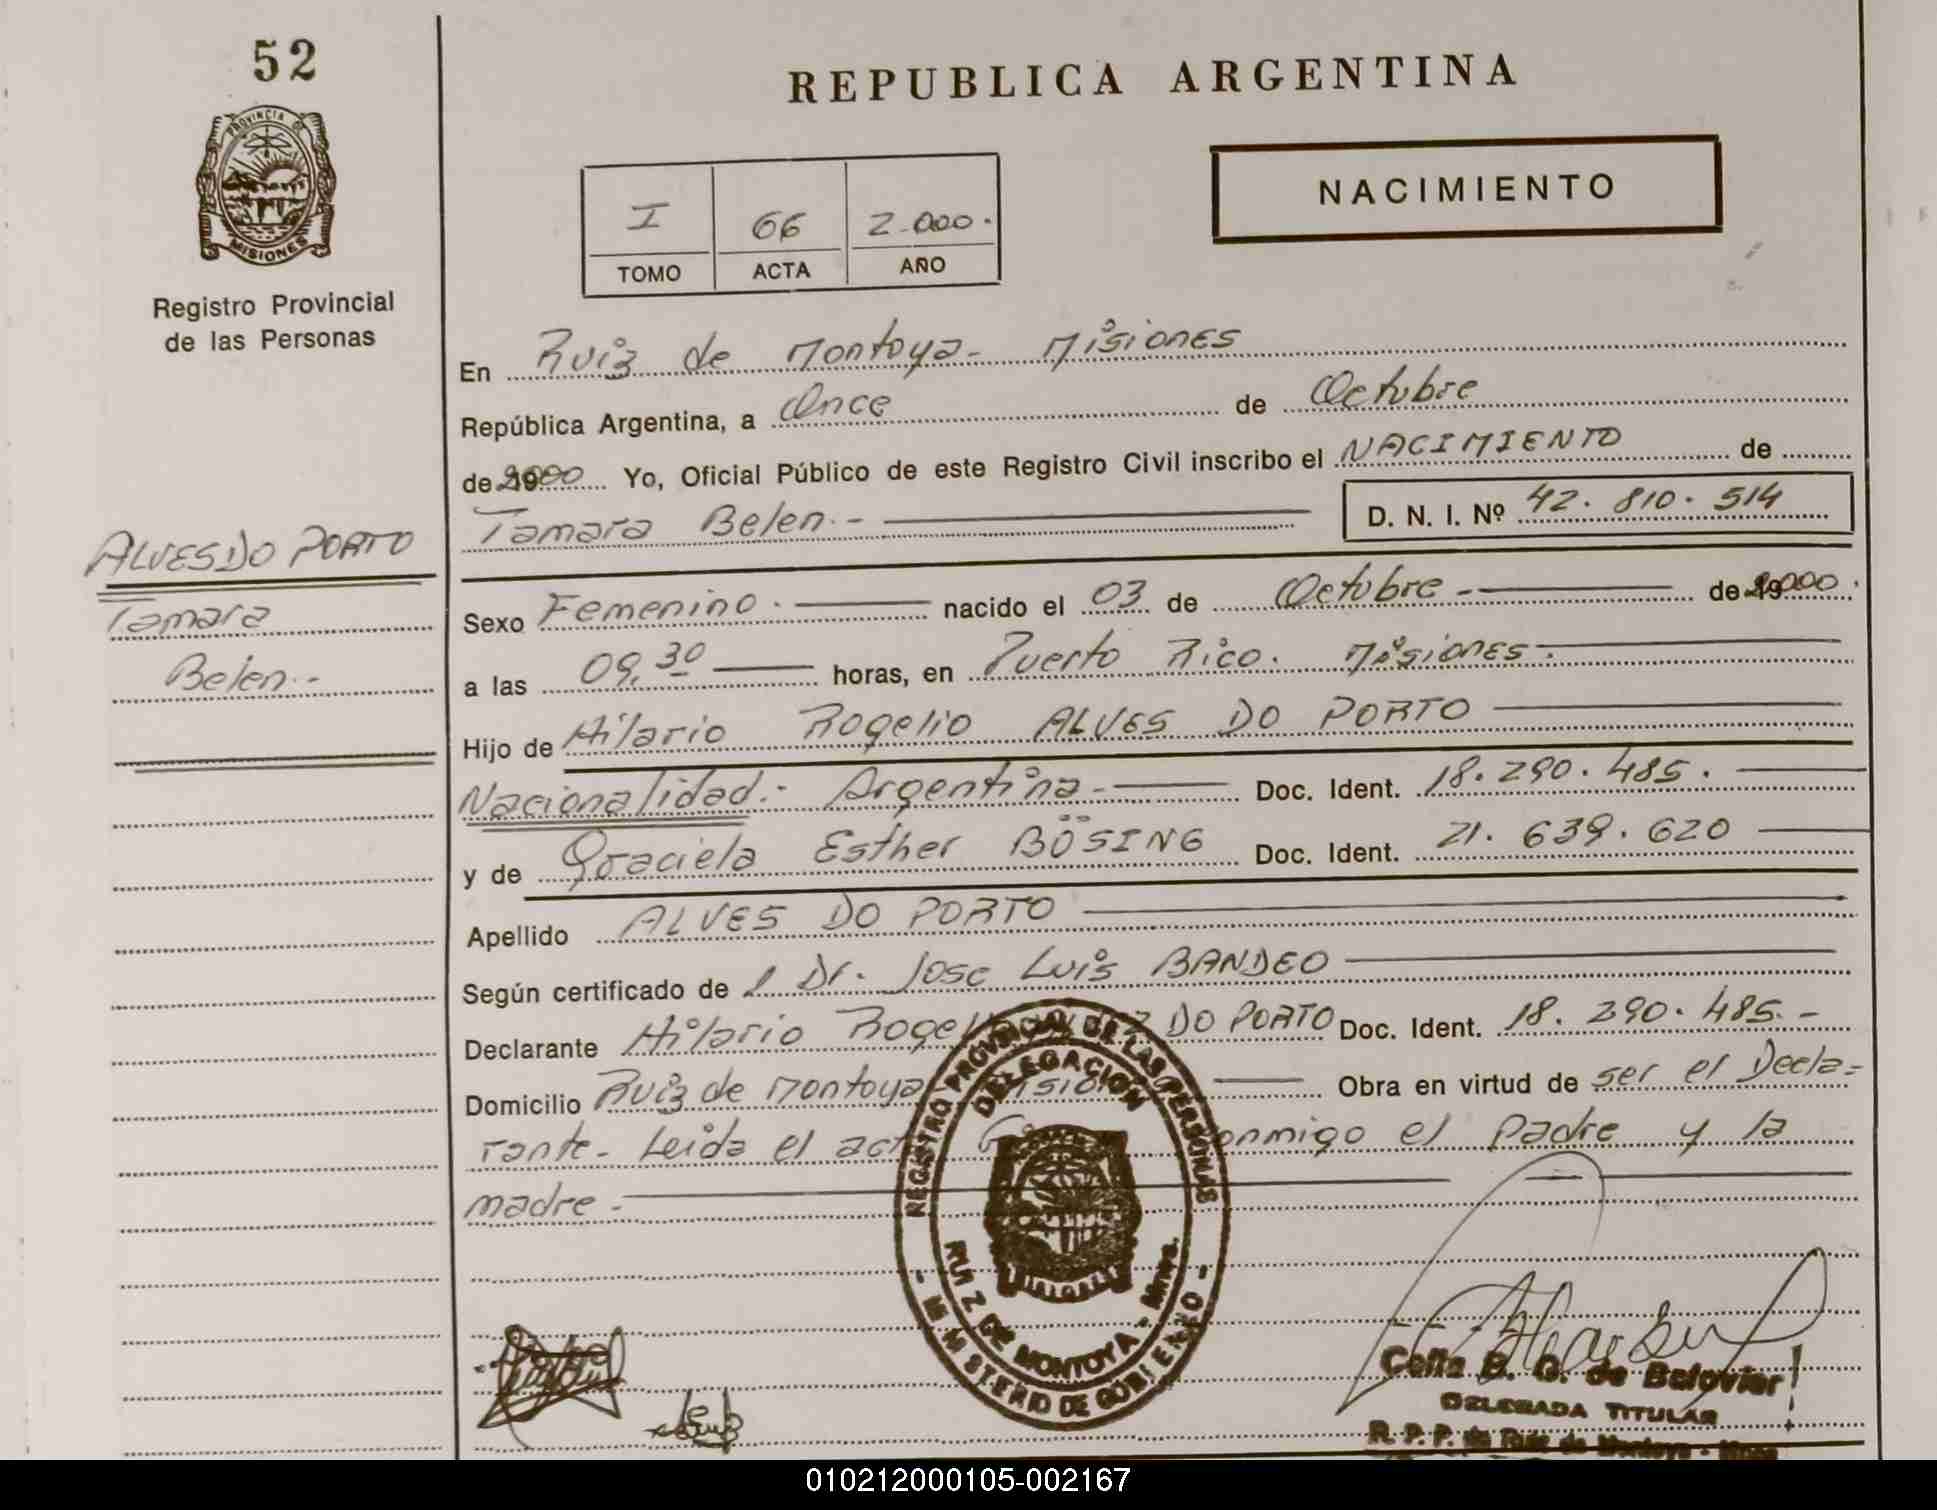 52
PROVINCIA DE
MISIONES
Registro Provincial
de las Personas
REPUBLICA ARGENTINA
NACIMIENTO
I 66 2.000.
TOMO ACTA AÑO
En Ruiz de Montoya- Misiones
República Argentina, a Once de Octubre
de 2000 Yo, Oficial Público de este Registro Civil inscribo el NACIMIENTO de
Tamara Belen.- D. N. I. Nº 42. 810. 514
ALVES DO PORTO
Tamara
Belen.-
Sexo Femenino. nacido el 03 de Octubre - de 2000.
a las 09,30 horas, en Puerto Rico. Misiones.
Hijo de Hilario Rogelio ALVES DO PORTO
Nacionalidad.- Argentina.- Doc. Ident. 18.290.485.
y de Graciela Esther BÖSING Doc. Ident. 21. 639. 620
Apellido ALVES DO PORTO
Según certificado de l Dr. Jose Luis BANDEO
Declarante Hilario DO PORTO Doc. Ident. 18. 290. 485.-
Domicilio Ruiz de Montoya Obra en virtud de ser el Decla=
rante- Leida el conmigo el padre y la
madre -
REGISTRO PROVINCIAL DE LAS PERSONAS
DELEGACION
RUIZ DE MONTOYA - Mnes.
- MINISTERIO DE GOBIERNO -
Celia B. G. de Belovier
DELEGADA TITULAR
R. P. P. de Ruiz de Montoya - Mnes
010212000105-002167